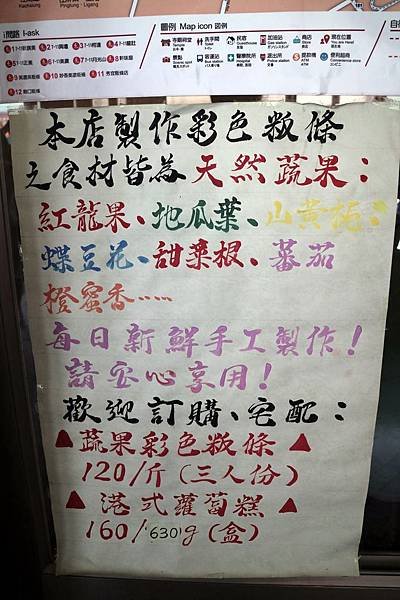 i問路 I-ask
圖例 Map icon 図例
本店製作彩色粄條
之食材皆為天然蔬果：
紅龍果、地瓜葉、山黃梔：
蝶豆花、甜菜根、蕃茄
橙蜜香……
每日新鮮手工製作！
請安心享用！
歡迎訂購、宅配：
▲蔬果彩色粄條▲
120/斤(三人份)
▲港式蘿蔔糕▲
160/630g(盒)